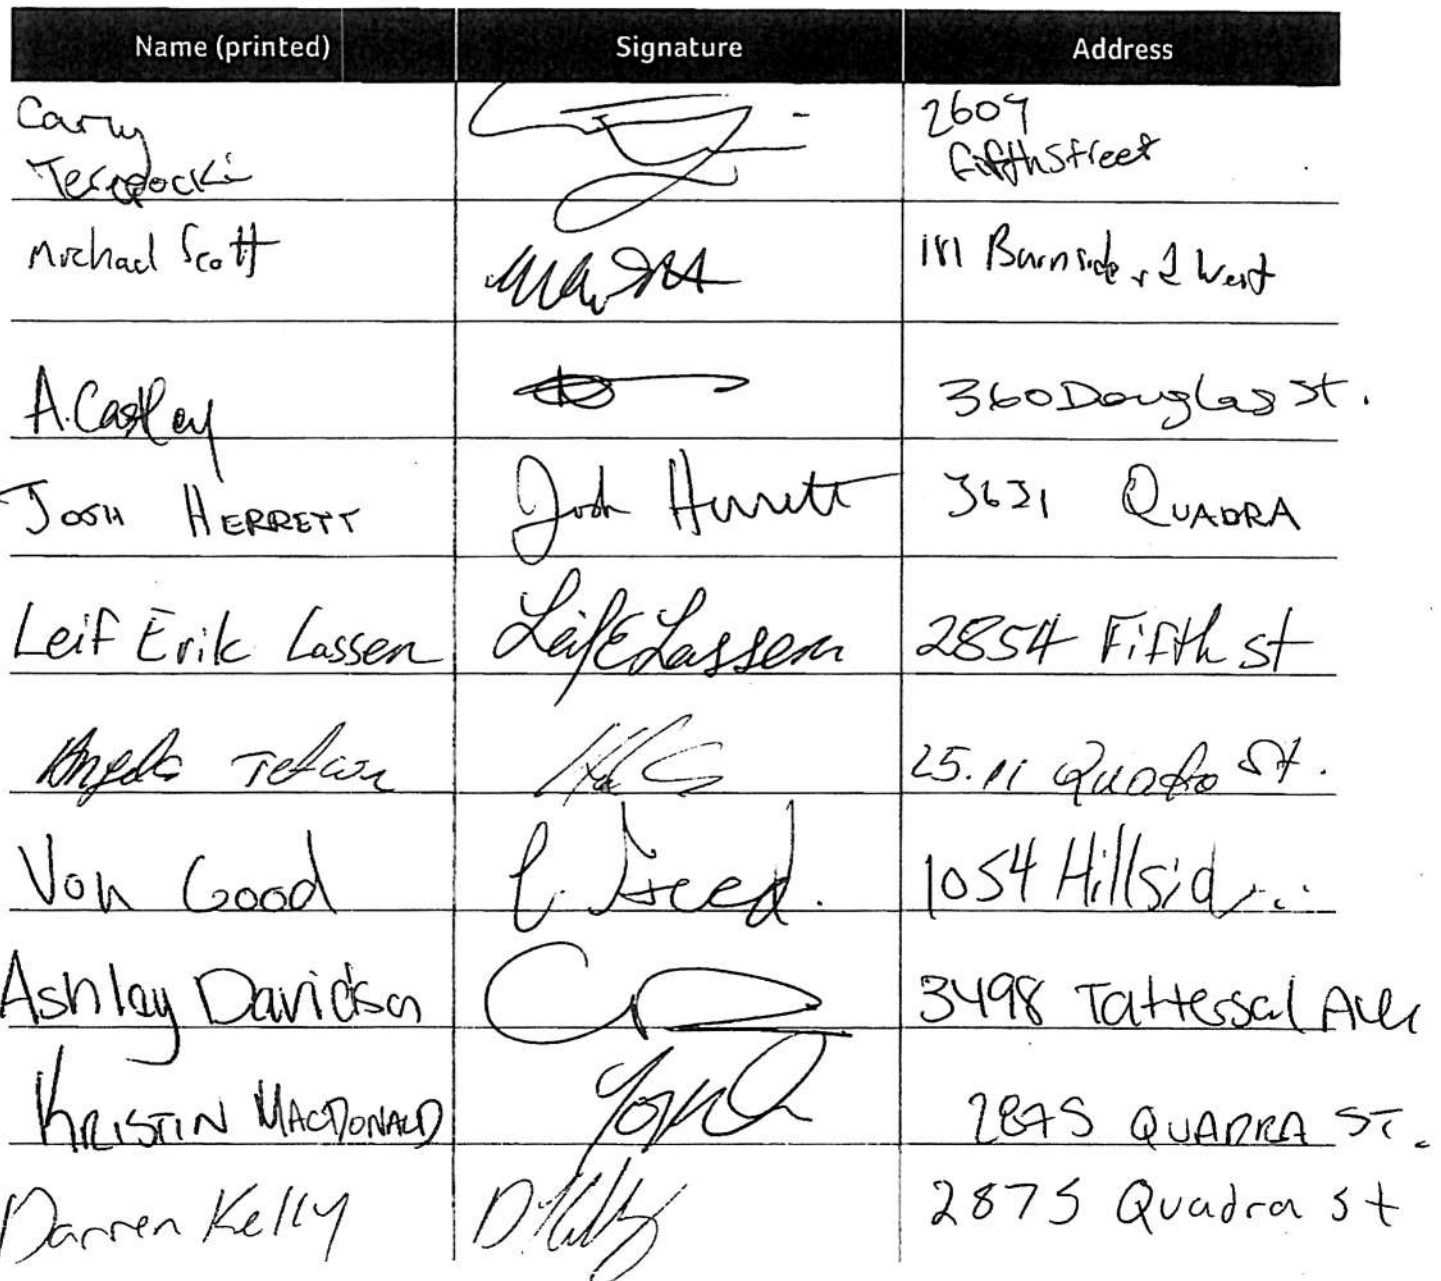 Name (printed) Signature Address
Cary 2609
Fifth Street
Michael Scott 1111 Burnside rd West
A. Castley 360 Douglas St.
JOSH HERRETT Josh Herrett 3621 QUADRA
Leif Erik Lassen Leif E Lassen 2854 Fifth st
Angela 25.11 Quadra St.
Von Good 1054 Hillsid
Ashley Davidson 3498 Tattersal Ave
KRISTIN MACDONALD 2875 QUADRA ST.
Darren Kelly D Kelly 2875 Quadra St